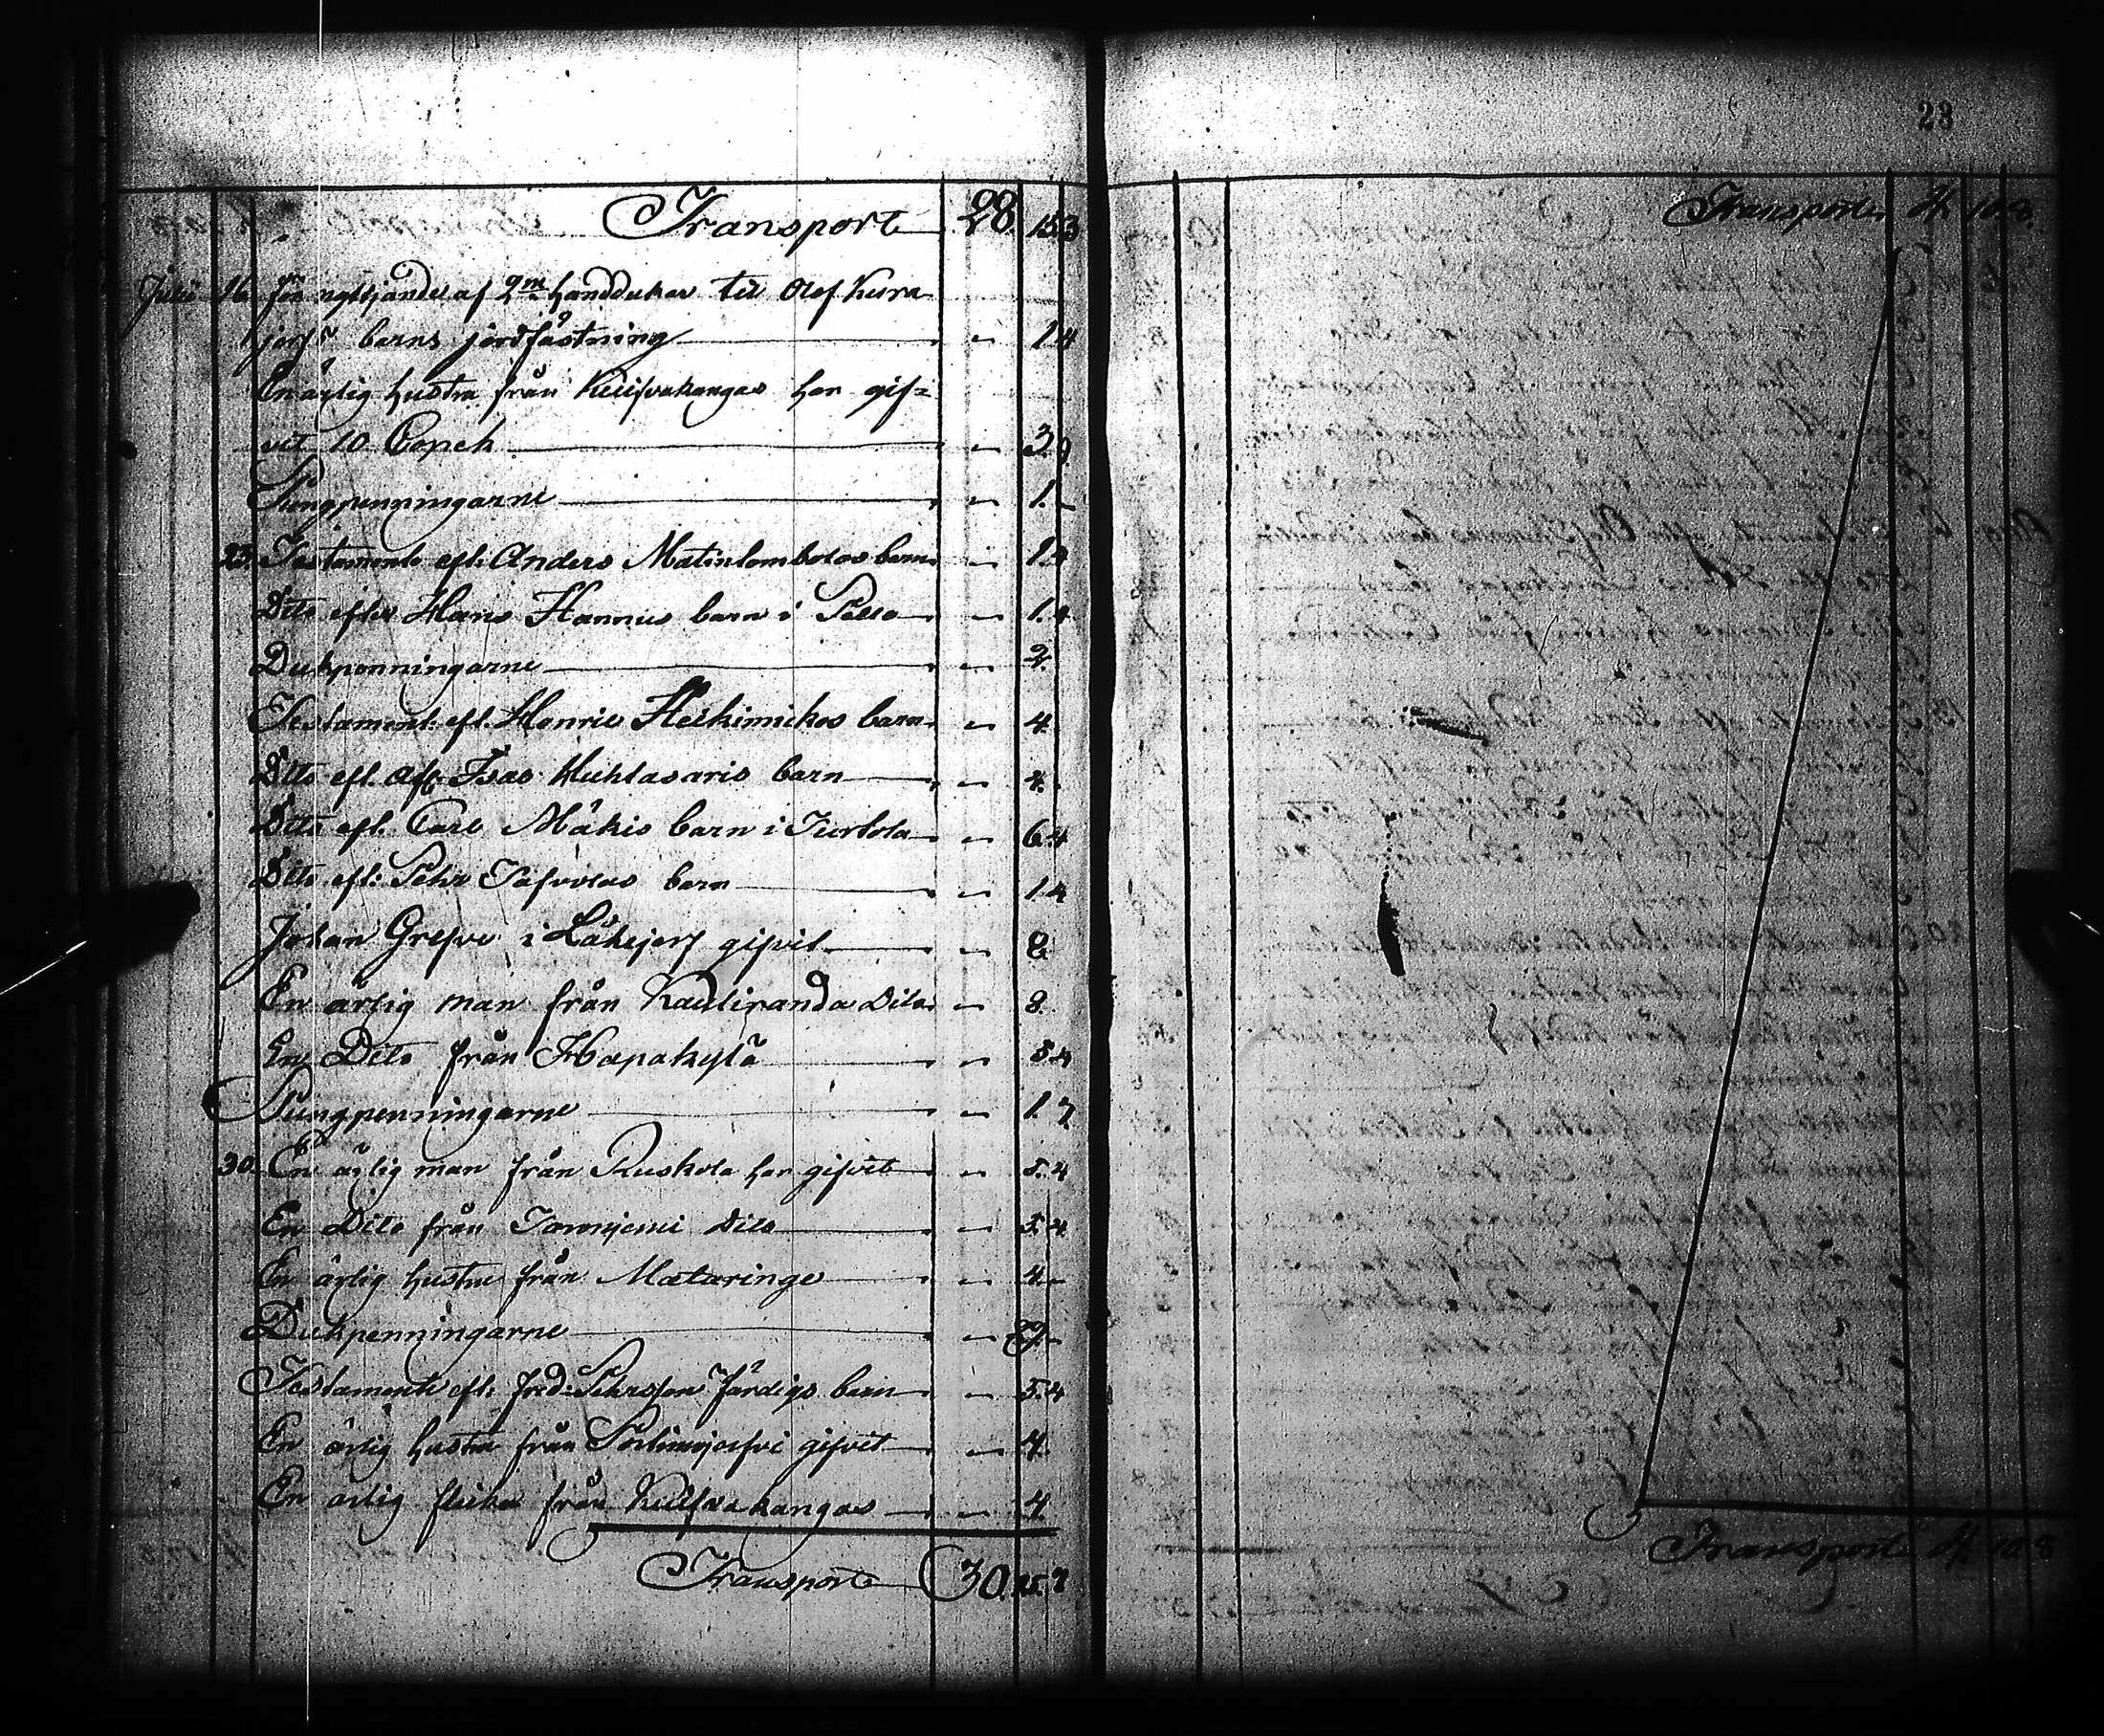 Transport 28. 15.3
Julii 16. För nyttjande af 2ne handdukar til Olof Kura
jerfs barns jordfästning - 1.4
En ärlig hustru från Kuifvakangas har gif=
vit 10 Copek - 3.9
Pungpenningarne - 1. -
23. Testamente eft: Anders Matinlombolos barn - 1.4
Dito efter Hans Hannus barn i Pello - 1.4
Dukpenningarne - 2.
Testament: eft. Henric Heikimickos barn - 4.
Dito eft. Isac Huhtasaris barn - 4.
Dito eft. Carl Mäkis barn i Turtola - 6.4
Dito eft: Pehr barn - 1.4
Johan Grefve i gifvit - 8.
En ärlig man från Kauliranda Dito - 8.
En Dito från Hapakylä - 5.4
Pungpenningarne - 1.7
30. En ärlig man från Ruskola har gifvit - 5.4
En Dito från Dito - 5.4
En ärlig hustru från Mataringe - 4. -
Dukpenningarne -
Testamente eft: Fred: Pehrsson Färdigs barn - 5.4
En ärlig hustru från Portimojerfvi gifvit - 4.
En ärlig flicka från Kuifvakangas - 4.
Transport 30. 15.7
23
Transport 4. 10.8.
Transport 4. 10.8